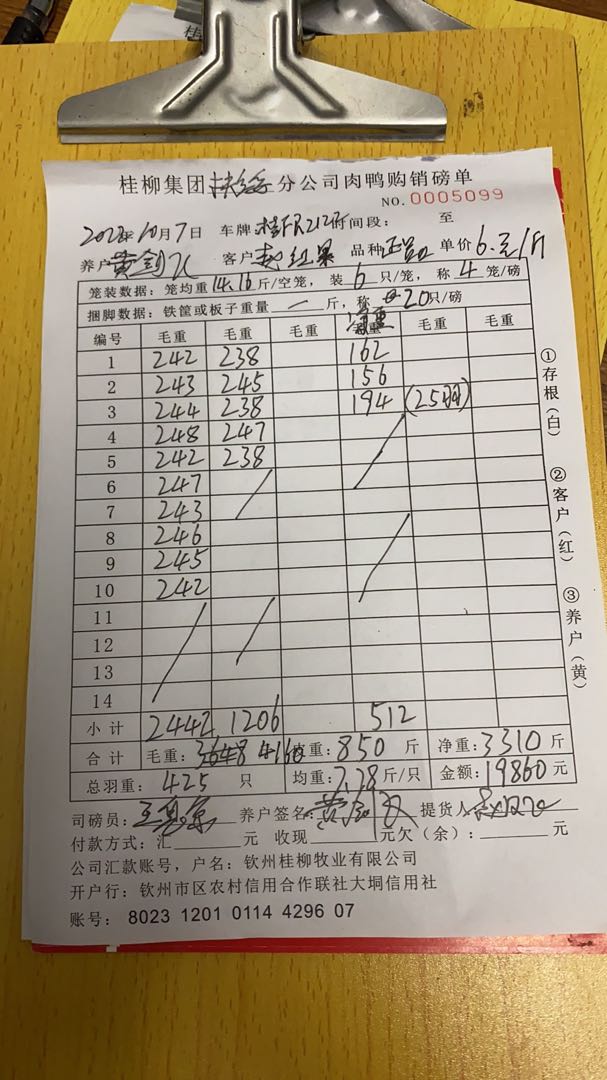 桂柳集团 分公司肉鸭购销磅单
NO.0005099
2022年10月7日 车牌 时间段: 至
养户 黄 客户 赵红果 品种 正品 单价 6.元/斤
笼装数据:笼均重14.16斤/空笼,装6只/笼,称4笼/磅
捆脚数据:铁筐或板子重量 一 斤,称 20只/磅
编号 毛重 毛重 毛重 毛重 毛重
1 242 238 162
2 243 245 156
3 244 238 194 (25羽)
4 248 247
5 242 238
6 247
7 243
8 246
9 245
10 242
11
12
13
14
小计 2442 1206 512
合计 毛重:3648 4160 重:850斤 净重:3310斤
总羽重:425只 均重:7.78斤/只 金额:19860元
司磅员: 养户签名: 提货人
付款方式:汇 元 收现 元欠(余): 元
公司汇款账号,户名:钦州桂柳牧业有限公司
开户行:钦州市区农村信用合作联社大垌信用社
账号:8023 1201 0114 4296 07
①存根(白)
②客户(红)
③养户(黄)